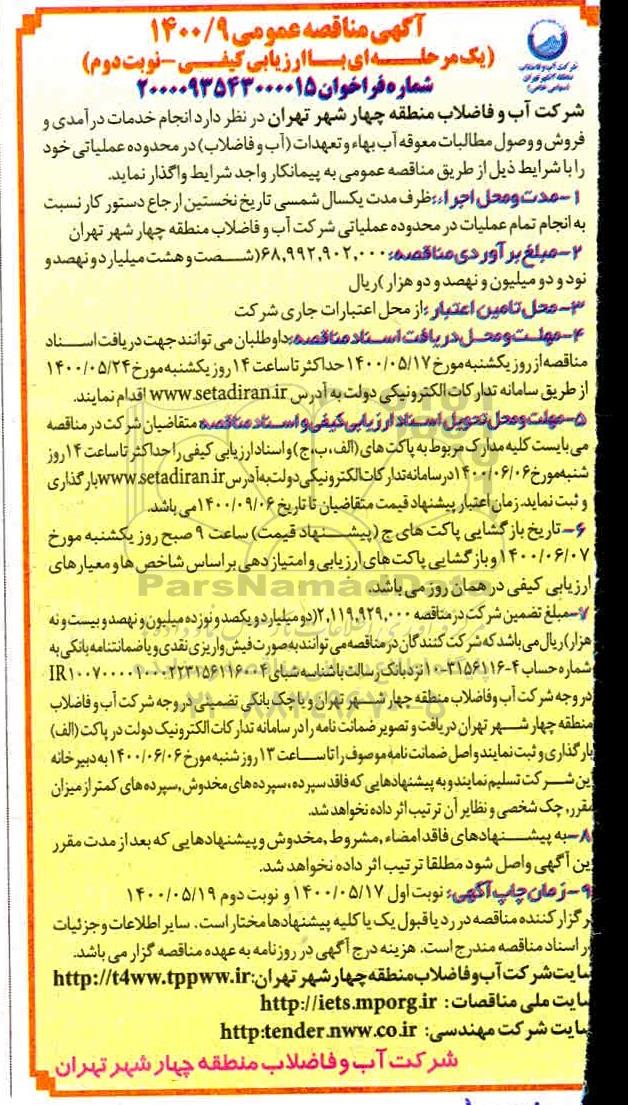 آگهی مناقصه عمومی ۱۴۰۰/۹
(یک مرحله ای با ارزیابی کیفی - نوبت دوم)
شماره فراخوان ۲۰۰۰۰۹۳۵۴۳۰۰۰۰۱۵
شرکت آب و فاضلاب
منطقه ۴ شهر تهران
(سهامی خاص)
شرکت آب و فاضلاب منطقه چهار شهر تهران در نظر دارد انجام خدمات درآمدی و
فروش و وصول مطالبات معوقه آب بهاء و تعهدات (آب و فاضلاب) در محدوده عملیاتی خود
را با شرایط ذیل از طریق مناقصه عمومی به پیمانکار واجد شرایط واگذار نماید.
۱- مدت و محل اجراء: ظرف مدت یکسال شمسی تاریخ نخستین ارجاع دستور کار نسبت
به انجام تمام عملیات در محدوده عملیاتی شرکت آب و فاضلاب منطقه چهار شهر تهران
۲- مبلغ برآوردی مناقصه: ۶۸,۹۹۲,۹۰۲,۰۰۰ (شصت و هشت میلیارد و نهصد و
نود و دو میلیون و نهصد و دو هزار) ریال
۳- محل تامین اعتبار: از محل اعتبارات جاری شرکت
۴- مهلت و محل دریافت اسناد مناقصه: داوطلبان می توانند جهت دریافت اسناد
مناقصه از روز یکشنبه مورخ ۱۴۰۰/۰۵/۱۷ حداکثر تا ساعت ۱۴ روز یکشنبه مورخ ۱۴۰۰/۰۵/۲۴
از طریق سامانه تدارکات الکترونیکی دولت به آدرس www.setadiran.ir اقدام نمایند.
۵- مهلت و محل تحویل اسناد ارزیابی کیفی و اسناد مناقصه: متقاضیان شرکت در مناقصه
می بایست کلیه مدارک مربوط به پاکت های (الف، ب، ج) و اسناد ارزیابی کیفی را حداکثر تا ساعت ۱۴ روز
شنبه مورخ ۱۴۰۰/۰۶/۰۶ در سامانه تدارکات الکترونیکی دولت به آدرس www.setadiran.ir بارگذاری
و ثبت نماید. زمان اعتبار پیشنهاد قیمت متقاضیان تا تاریخ ۱۴۰۰/۰۹/۰۶ می باشد.
۶- تاریخ بازگشایی پاکت های ج (پیشنهاد قیمت) ساعت ۹ صبح روز یکشنبه مورخ
۱۴۰۰/۰۶/۰۷ و بازگشایی پاکت های ارزیابی و امتیازدهی بر اساس شاخص ها و معیارهای
ارزیابی کیفی در همان روز می باشد.
ParsNamadData
۷- مبلغ تضمین شرکت در مناقصه ۲,۱۱۹,۹۲۹,۰۰۰ (دو میلیارد و یکصد و نوزده میلیون و نهصد و بیست و نه
هزار) ریال می باشد که شرکت کنندگان در مناقصه می توانند به صورت فیش واریزی نقدی و یا ضمانتنامه بانکی به
شماره حساب ۴-۳۱۵۶۱۱۶-۱۰ نزد بانک رسالت با شناسه شبای
در وجه شرکت آب و فاضلاب منطقه چهار شهر تهران و یا چک بانکی تضمینی در وجه شرکت آب و فاضلاب
منطقه چهار شهر تهران دریافت و تصویر ضمانت نامه را در سامانه تدارکات الکترونیک دولت در پاکت (الف)
بارگذاری و ثبت نمایند و اصل ضمانت نامه موصوف را تا ساعت ۱۳ روز شنبه مورخ ۱۴۰۰/۰۶/۰۶ به دبیرخانه
این شرکت تسلیم نمایند و به پیشنهادهایی که فاقد سپرده، سپرده های مخدوش, سپرده های کمتر از میزان
مقرر, چک شخصی و نظایر آن ترتیب اثر داده نخواهد شد.
۸- به پیشنهادهای فاقد امضاء, مشروط, مخدوش و پیشنهادهایی که بعد از مدت مقرر
این آگهی واصل شود مطلقا ترتیب اثر داده نخواهد شد.
۹- زمان چاپ آگهی: نوبت اول ۱۴۰۰/۰۵/۱۷ و نوبت دوم ۱۴۰۰/۰۵/۱۹
برگزار کننده مناقصه در رد یا قبول یک یا کلیه پیشنهادها مختار است. سایر اطلاعات و جزئیات
در اسناد مناقصه مندرج است. هزینه درج آگهی در روزنامه به عهده مناقصه گزار می باشد.
سایت شرکت آب و فاضلاب منطقه چهار شهر تهران: http://t4ww.tppww.ir
سایت ملی مناقصات: http://iets.mporg.ir
سایت شرکت مهندسی: http:tender.nww.co.ir
شرکت آب و فاضلاب منطقه چهار شهر تهران